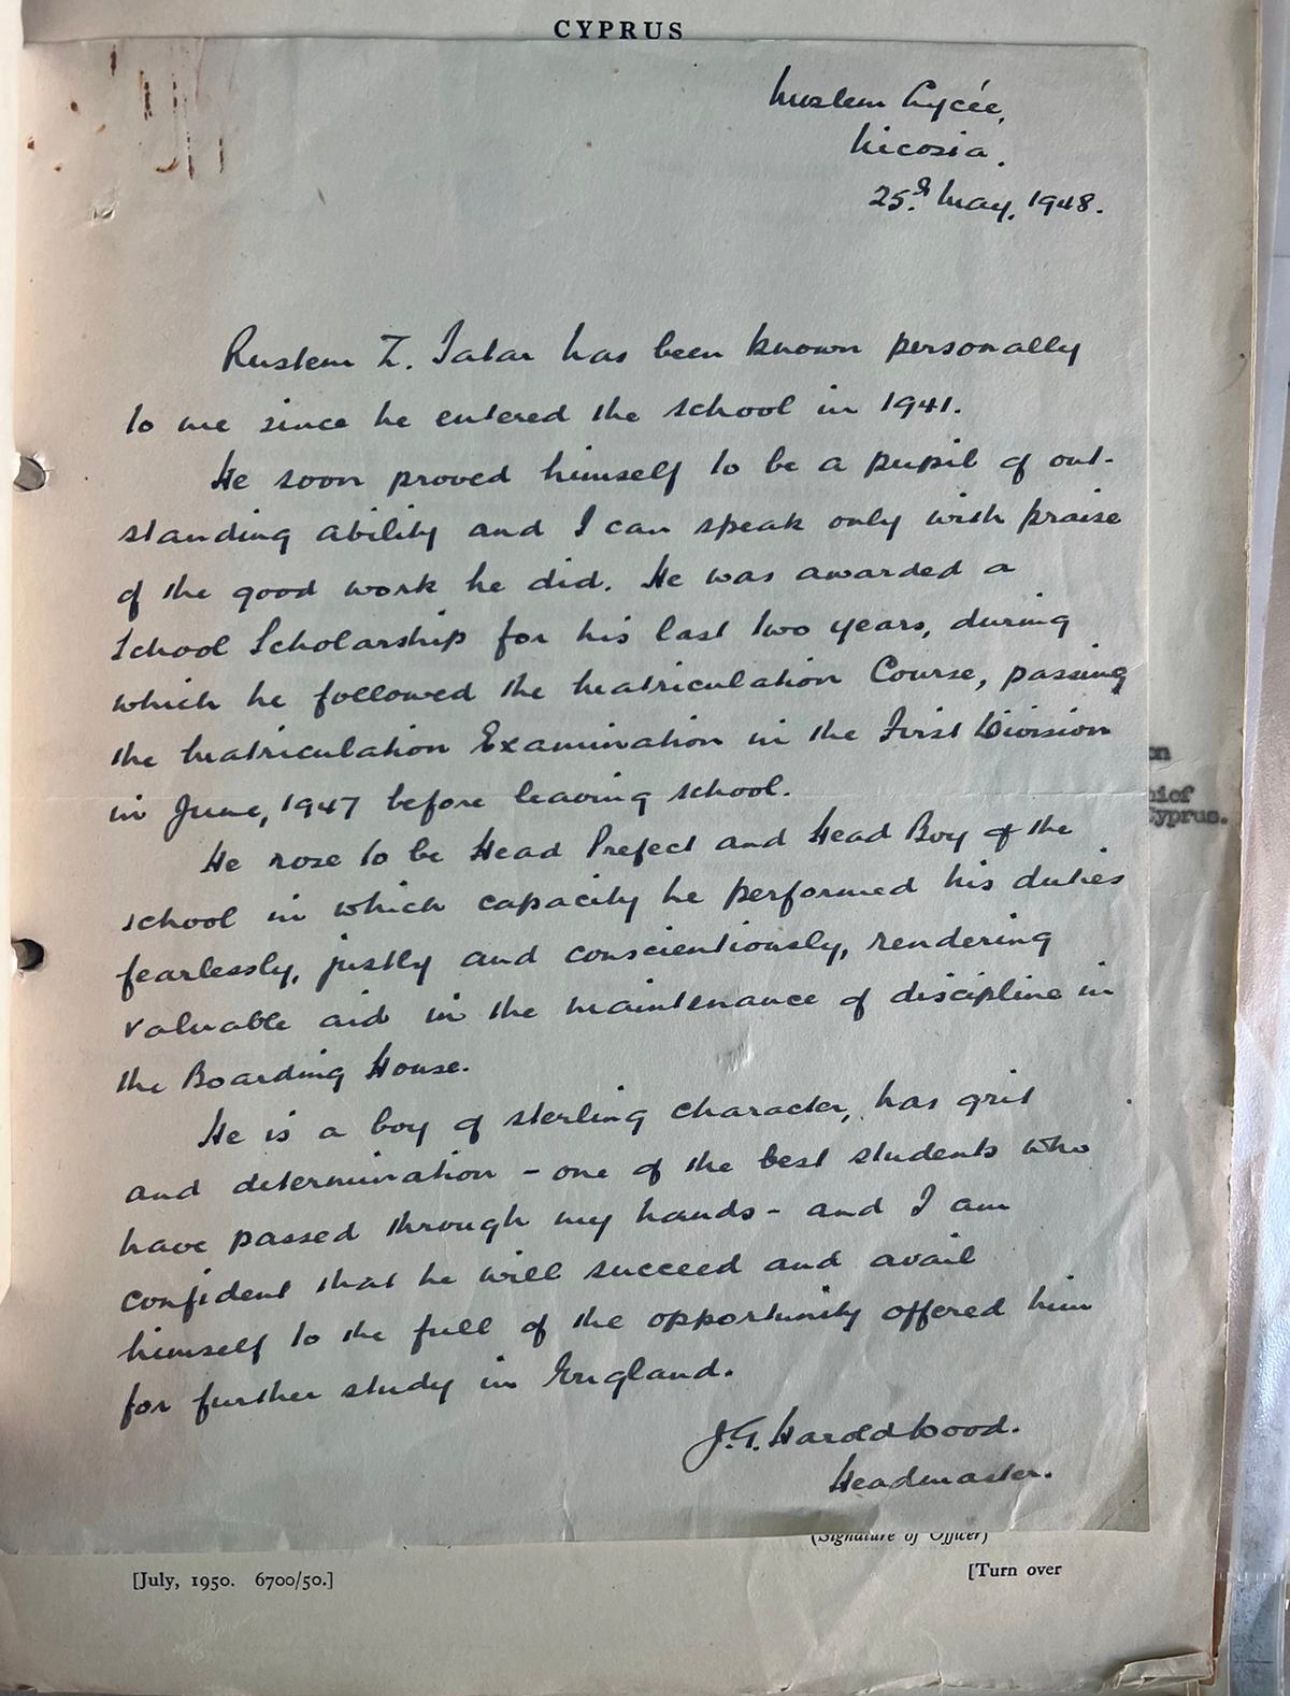 CYPRUS
Muslem Lycée,
Nicosia.
25th May, 1948.
Rustem Z. Tatar has been known personally
to me since he entered the school in 1941.
He soon proved himself to be a pupil of out-
standing ability and I can speak only with praise
of the good work he did. He was awarded a
School Scholarship for his last two years, during
which he followed the Matriculation Course, passing
the Matriculation Examination in the First Division
in June, 1947 before leaving school.
He rose to be Head Prefect and Head Boy of the
school in which capacity he performed his duties
fearlessly, justly and conscientiously, rendering
valuable aid in the maintenance of discipline in
the Boarding House.
He is a boy of sterling character, has grit
and determination - one of the best students who
have passed through my hands - and I am
confident that he will succeed and avail
himself to the full of the opportunity offered him
for further study in England.
J.G. Harold Wood.
Headmaster.
on
hief
Cyprus.
(Signature of Officer)
[July, 1950. 6700/50.]
[Turn over